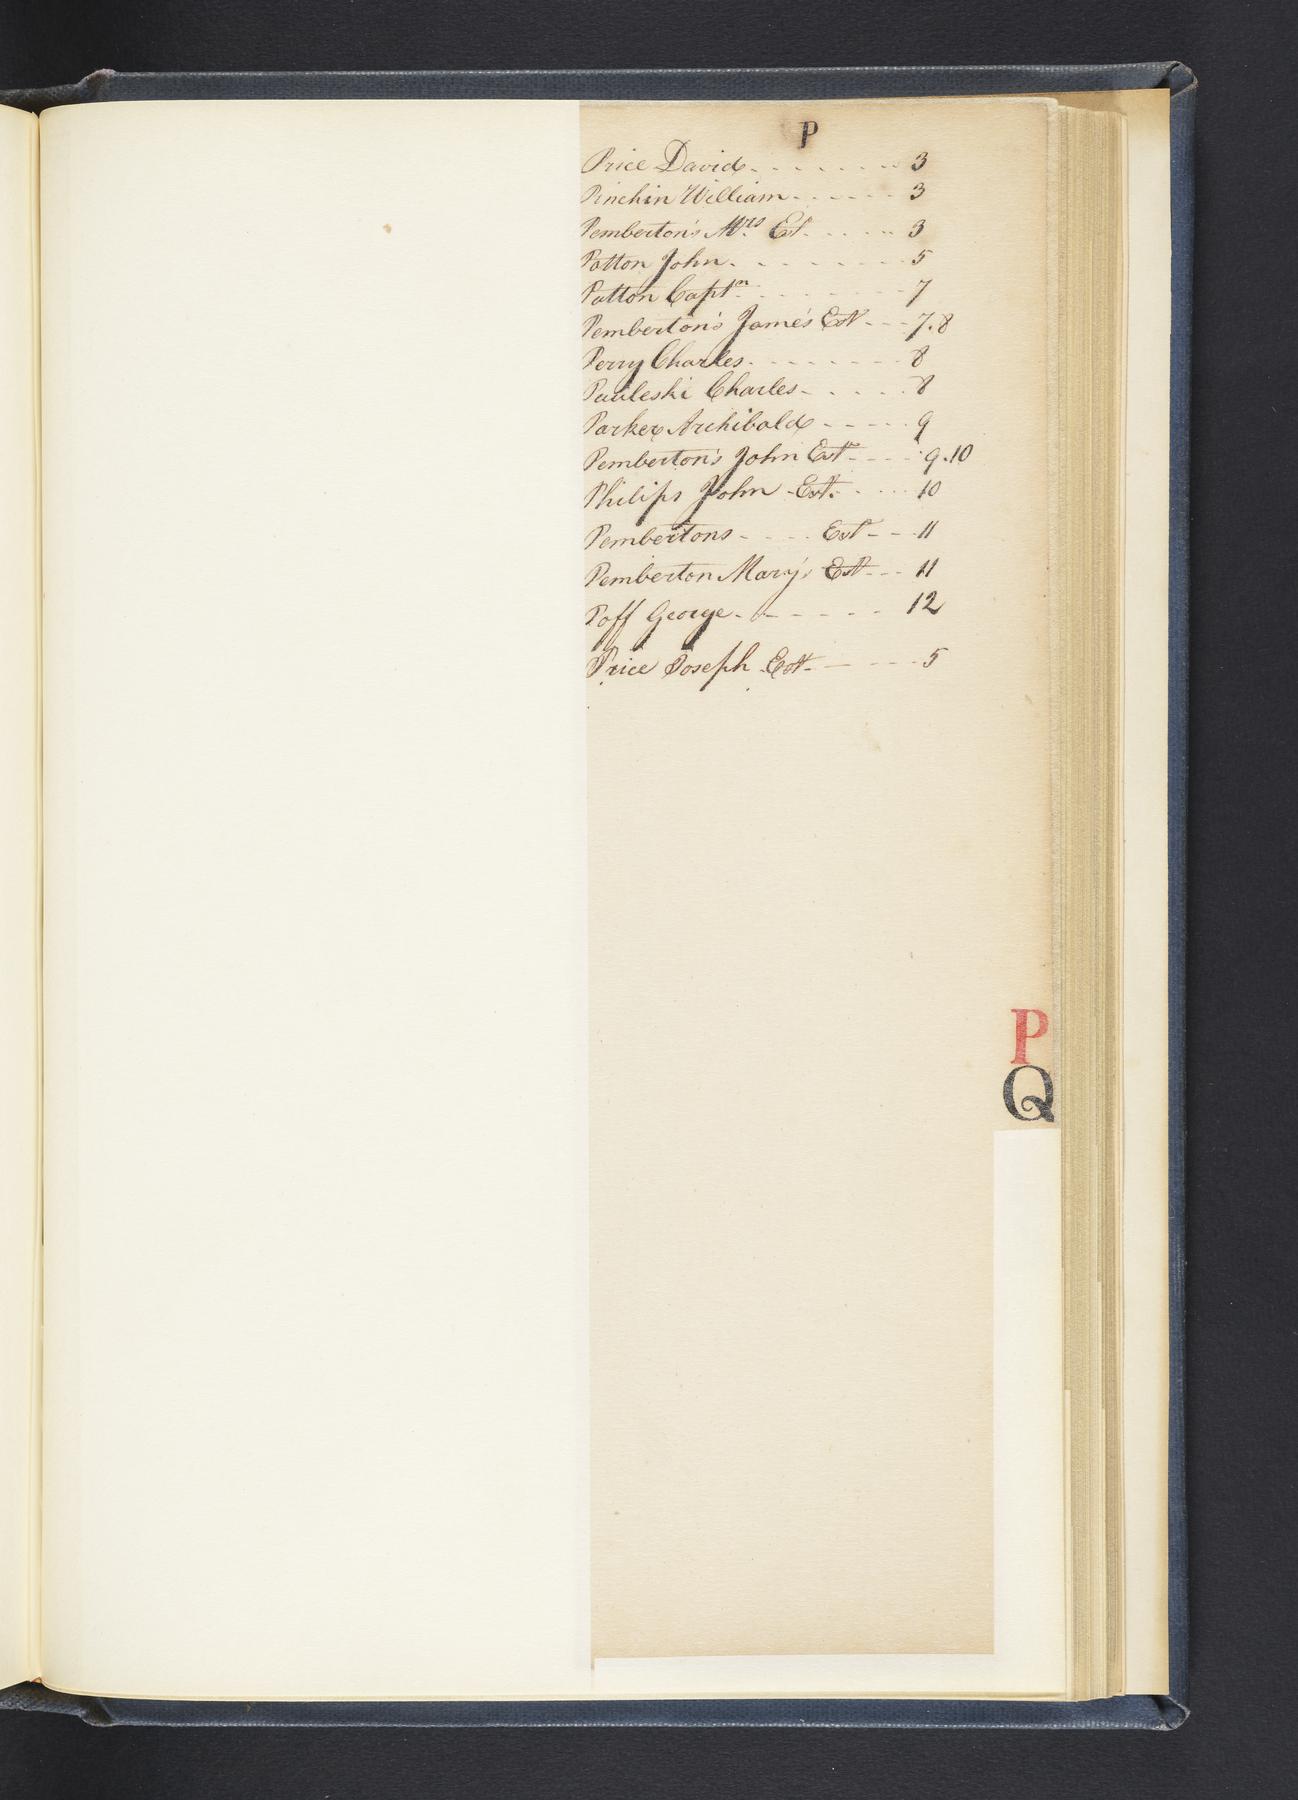 P
Price David - - - - - - - - 3
Pinchin William - - - - - - 3
Pemberton's Mrs Est. - - - - - 3
Patton John - - - - - - - - 5
Patton Captn - - - - - - - 7
Pemberton's James Est - - - 7.8
Perry Charles - - - - - - - 8
Pauleski Charles - - - - - 8
Parker Archibald - - - - - 9
Pemberton's John Est - - - - 9.10
Philips John Est. - - - - 10
Pembertons - - - - Est - - - 11
Pemberton Mary's Est - - - 11
Poff George - - - - - - - 12
Price Joseph Est - - - - - 5
P
Q